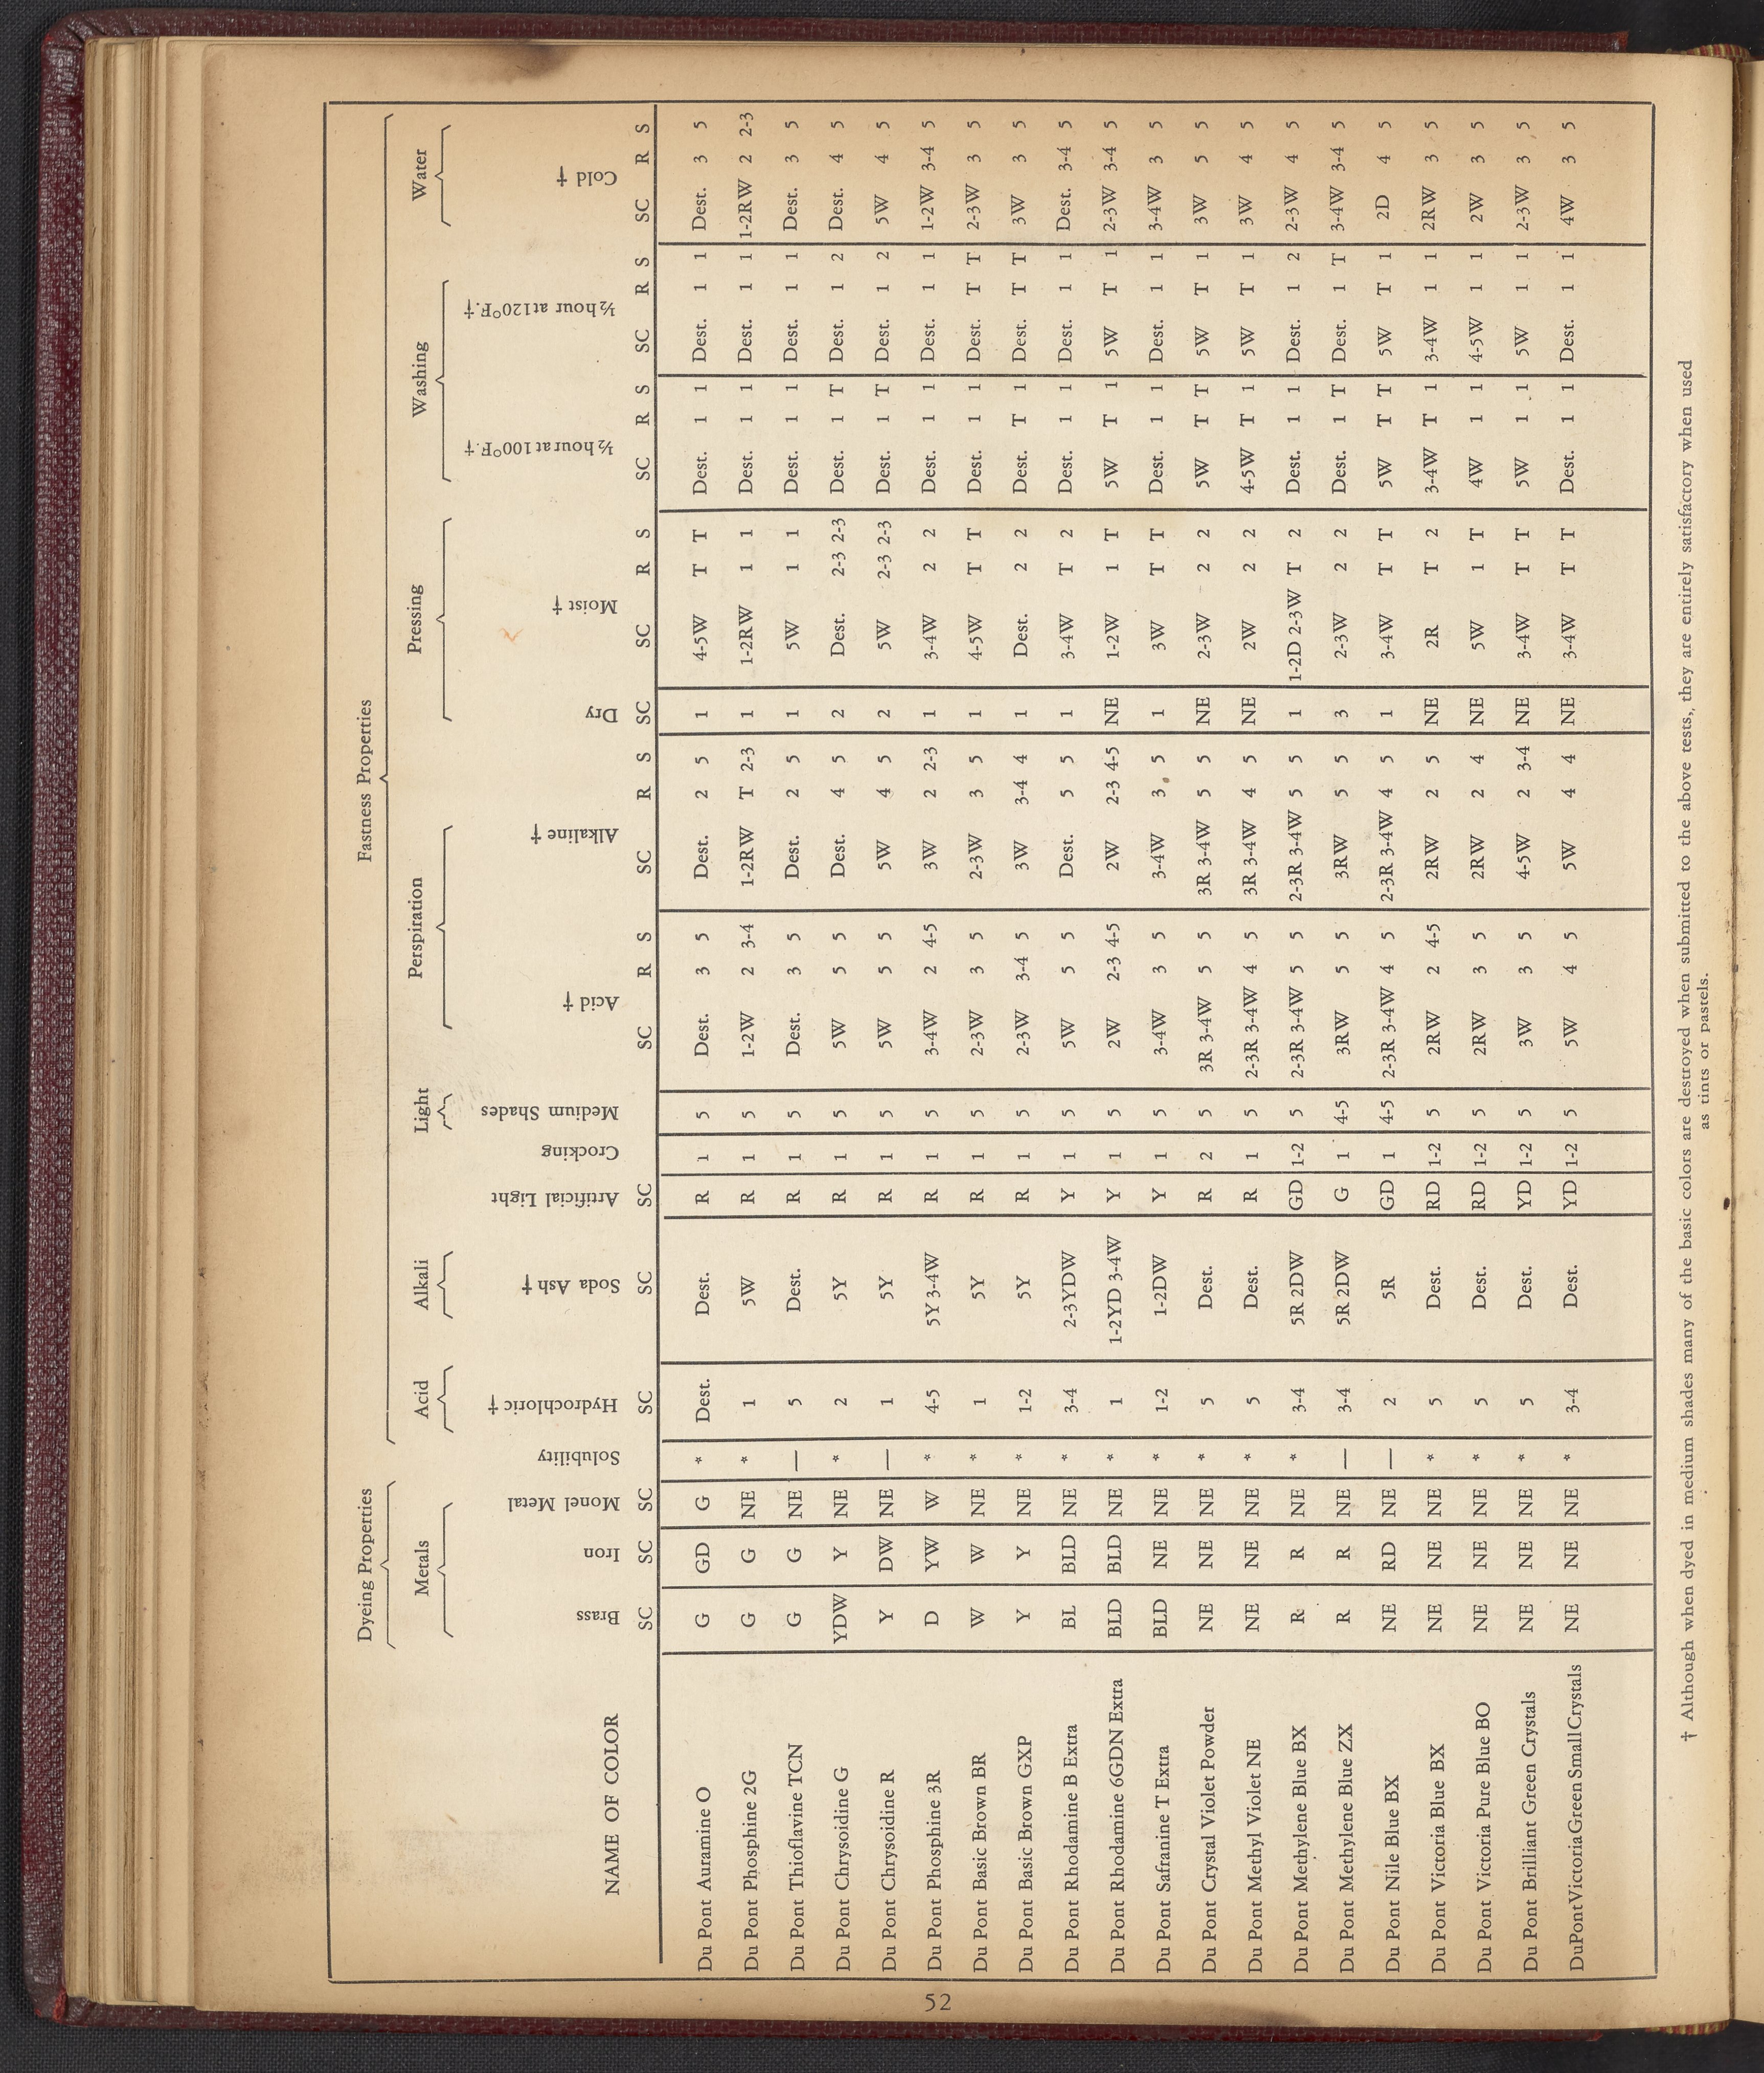 Dyeing Properties Fastness Properties
Metals Acid Alkali Light Perspiration Pressing Washing Water
NAME OF COLOR Brass Iron Monel Metal Solubility Hydrochloric † Soda Ash † Artificial Light Crocking Medium Shades Acid † Alkaline † Dry Moist † ½ hour at 100°F. † ½ hour at 120°F. † Cold †
SC SC SC SC SC SC SC R S SC R S SC SC R S SC R S SC R S SC R S
Du Pont Auramine O G GD G * Dest. Dest. R 1 5 Dest. 3 5 Dest. 2 5 1 4-5W T T Dest. 1 1 Dest. 1 1 Dest. 3 5
Du Pont Phosphine 2G G G NE * 1 5W R 1 5 1-2W 2 3-4 1-2RW T 2-3 1 1-2RW 1 1 Dest. 1 1 Dest. 1 1 1-2RW 2 2-3
Du Pont Thioflavine TCN G G NE — 5 Dest. R 1 5 Dest. 3 5 Dest. 2 5 1 5W 1 1 Dest. 1 1 Dest. 1 1 Dest. 3 5
Du Pont Chrysoidine G YDW Y NE * 2 5Y R 1 5 5W 5 5 Dest. 4 5 2 Dest. 2-3 2-3 Dest. 1 T Dest. 1 2 Dest. 4 5
Du Pont Chrysoidine R Y DW NE — 1 5Y R 1 5 5W 5 5 5W 4 5 2 5W 2-3 2-3 Dest. 1 T Dest. 1 2 5W 4 5
Du Pont Phosphine 3R D YW W * 4-5 5Y 3-4W R 1 5 3-4W 2 4-5 3W 2 2-3 1 3-4W 2 2 Dest. 1 1 Dest. 1 1 1-2W 3-4 5
Du Pont Basic Brown BR W W NE * 1 5Y R 1 5 2-3W 3 5 2-3W 3 5 1 4-5W T T Dest. 1 1 Dest. T T 2-3W 3 5
Du Pont Basic Brown GXP Y Y NE * 1-2 5Y R 1 5 2-3W 3-4 5 3W 3-4 4 1 Dest. 2 2 Dest. T 1 Dest. T T 3W 3 5
Du Pont Rhodamine B Extra BL BLD NE * 3-4 2-3YDW Y 1 5 5W 5 5 Dest. 5 5 1 3-4W T 2 Dest. 1 1 Dest. 1 1 Dest. 3-4 5
Du Pont Rhodamine 6GDN Extra BLD BLD NE * 1 1-2YD 3-4W Y 1 5 2W 2-3 4-5 2W 2-3 4-5 NE 1-2W 1 T 5W T 1 5W T 1 2-3W 3-4 5
Du Pont Safranine T Extra BLD NE NE * 1-2 1-2DW Y 1 5 3-4W 3 5 3-4W 3 5 1 3W T T Dest. 1 1 Dest. 1 1 3-4W 3 5
Du Pont Crystal Violet Powder NE NE NE * 5 Dest. R 2 5 3R 3-4W 5 5 3R 3-4W 5 5 NE 2-3W 2 2 5W T T 5W T 1 3W 5 5
Du Pont Methyl Violet NE NE NE NE * 5 Dest. R 1 5 2-3R 3-4W 4 5 3R 3-4W 4 5 NE 2W 2 2 4-5W T 1 5W T 1 3W 4 5
Du Pont Methylene Blue BX R R NE * 3-4 5R 2DW GD 1-2 5 2-3R 3-4W 5 5 2-3R 3-4W 5 5 1 1-2D 2-3W T 2 Dest. 1 1 Dest. 1 2 2-3W 4 5
Du Pont Methylene Blue ZX R R NE — 3-4 5R 2DW G 1 4-5 3RW 5 5 3RW 5 5 3 2-3W 2 2 Dest. 1 T Dest. 1 T 3-4W 3-4 5
Du Pont Nile Blue BX NE RD NE — 2 5R GD 1 4-5 2-3R 3-4W 4 5 2-3R 3-4W 4 5 1 3-4W T T 5W T T 5W T 1 2D 4 5
Du Pont Victoria Blue BX NE NE NE * 5 Dest. RD 1-2 5 2RW 2 4-5 2RW 2 5 NE 2R T 2 3-4W T 1 3-4W 1 1 2RW 3 5
Du Pont Victoria Pure Blue BO NE NE NE * 5 Dest. RD 1-2 5 2RW 3 5 2RW 2 4 NE 5W 1 T 4W 1 1 4-5W 1 1 2W 3 5
Du Pont Brilliant Green Crystals NE NE NE * 5 Dest. YD 1-2 5 3W 3 5 4-5W 2 3-4 NE 3-4W T T 5W 1 1 5W 1 1 2-3W 3 5
Du Pont Victoria Green Small Crystals NE NE NE * 3-4 Dest. YD 1-2 5 5W 4 5 5W 4 4 NE 3-4W T T Dest. 1 1 Dest. 1 1 4W 3 5
† Although when dyed in medium shades many of the basic colors are destroyed when submitted to the above tests, they are entirely satisfactory when used
as tints or pastels.
52